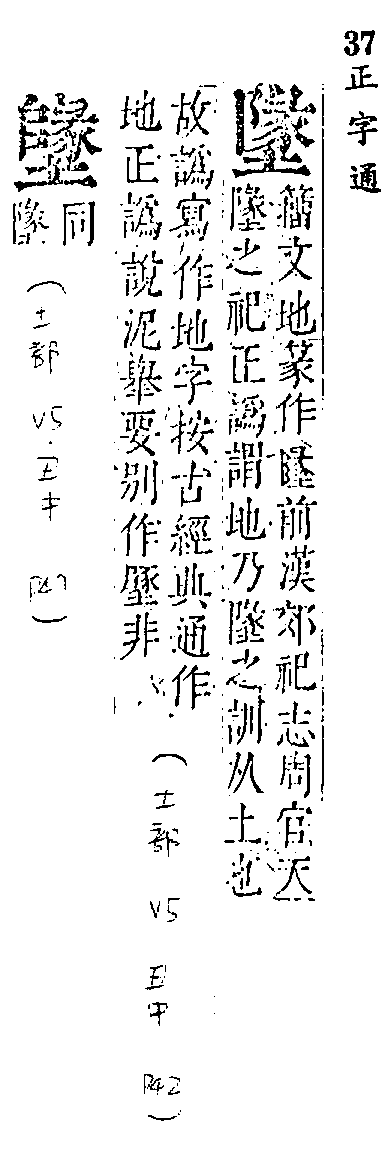 37 正字通
墬
籀文地篆作墬前漢郊祀志周官天
墬之祀正譌謂地乃墬之訓从土也
故譌寫作地字按古經典通作
地正譌說泥舉要別作非
(土部 V5 丑中 P42)
同
墬
(土部 V5.丑中 P47)